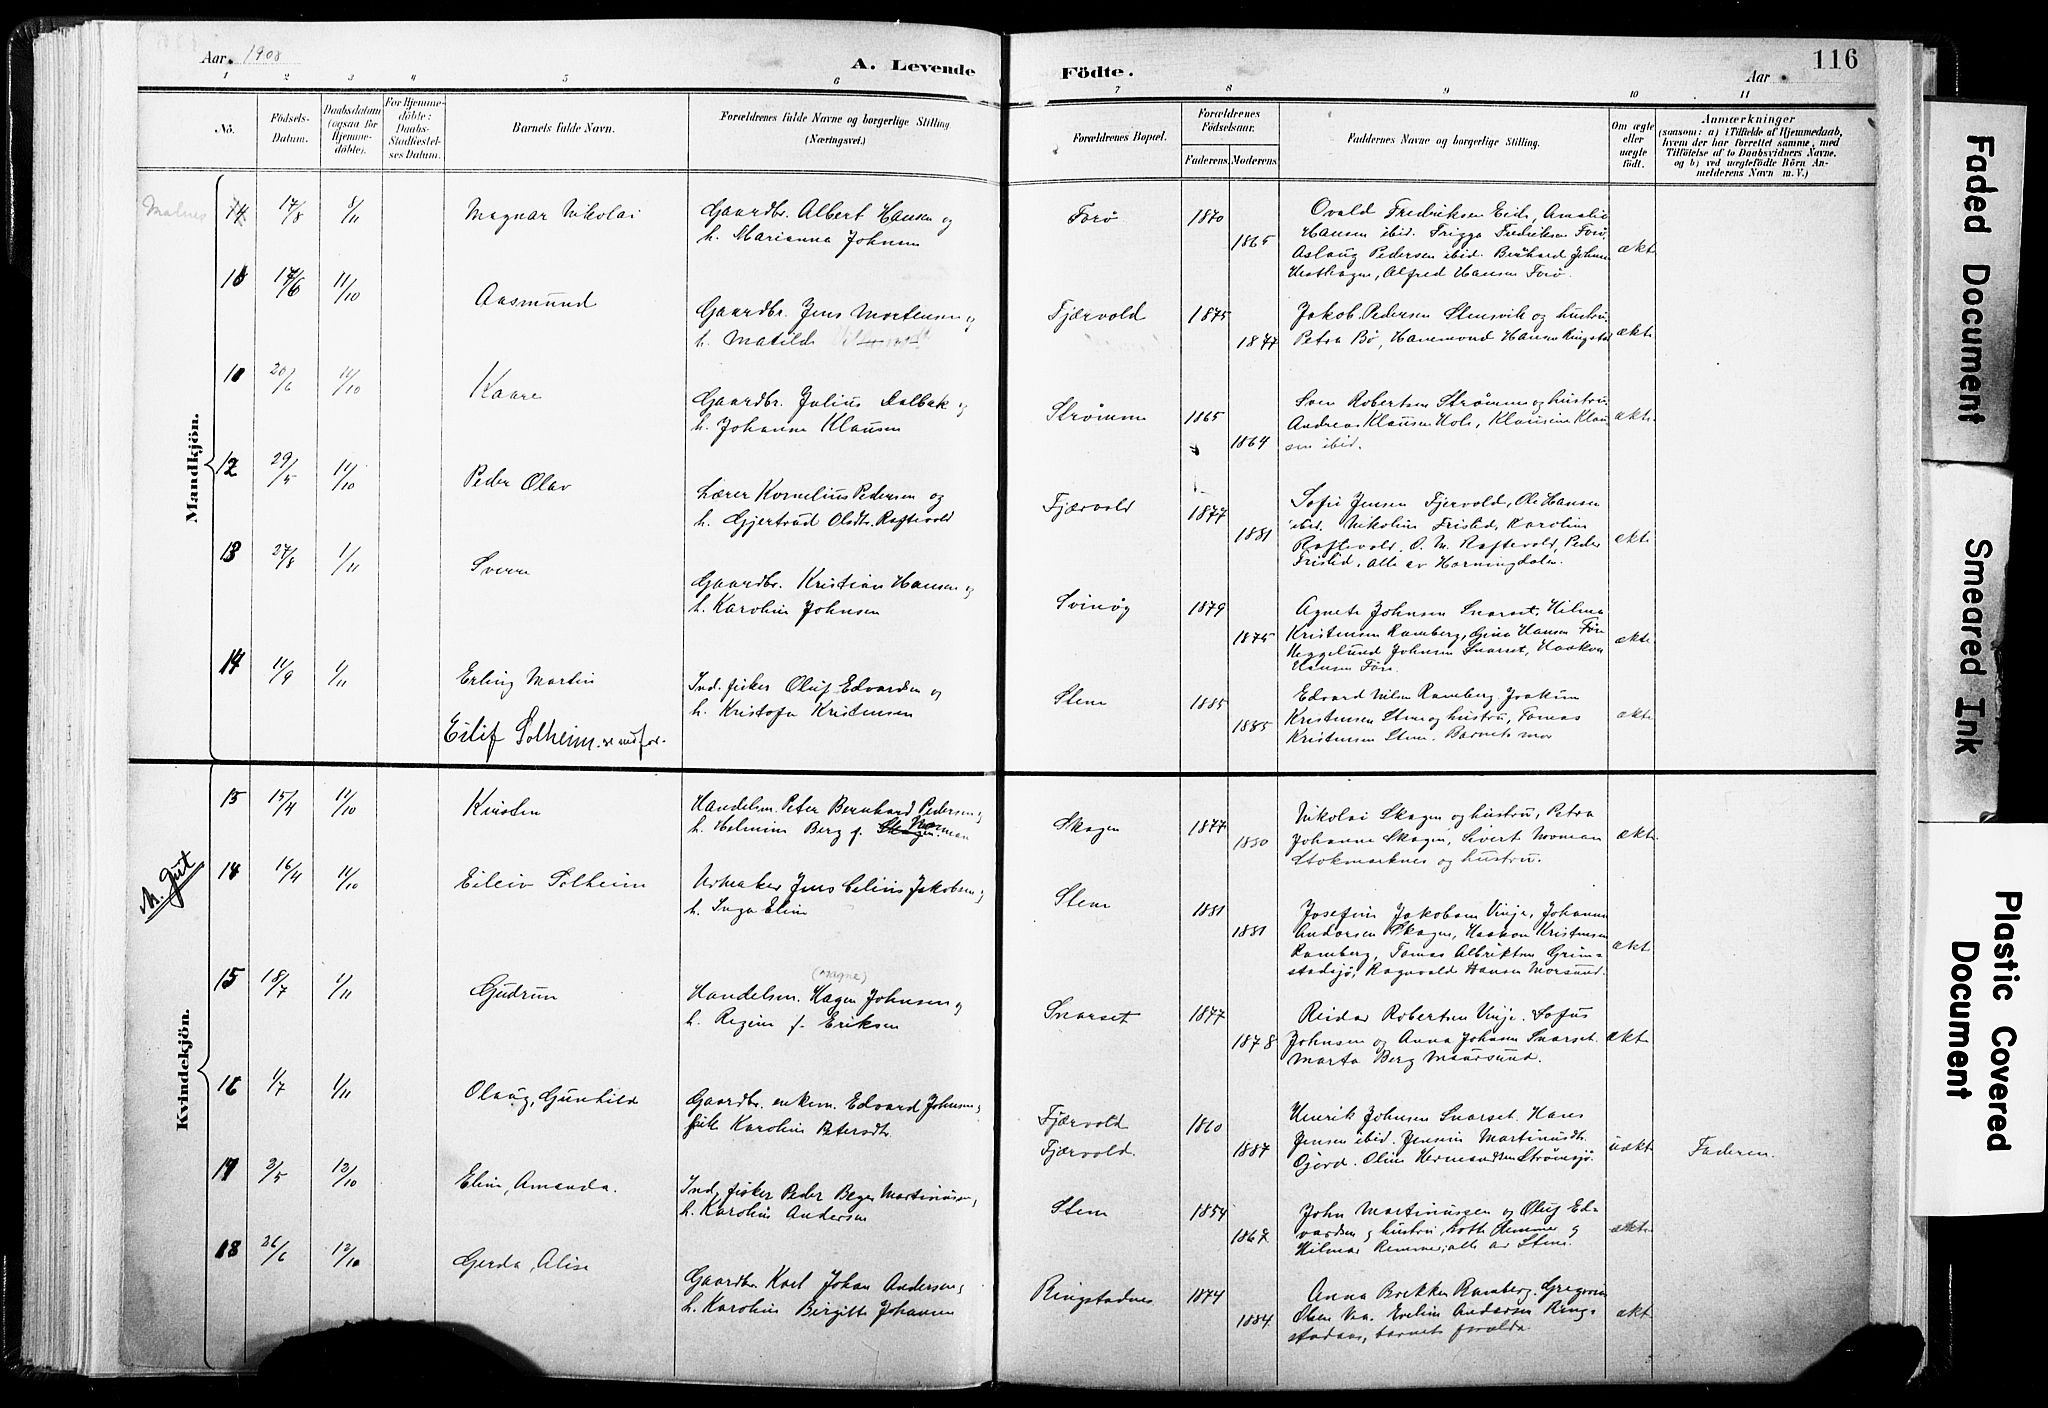 Aar. 1908
A. Levende Födte.
Aar
116
1 2 3 4 5 6 7 8 9 10 11
Nö.
Födsels-Datum.
Daabsdatum (ogsaa for Hjemme-döbte).
For Hjemme-döbte: Daabs-Stadfæstel-ses Datum.
Barnets fulde Navn.
Forældrenes fulde Navne og borgerlige Stilling (Næringsvei.)
Forældrenes Bopæl.
Forældrenes Födselsaar.
Faderens
Moderens
Faddernes Navne og borgerlige Stilling.
Om ægte eller uægte födt.
Anmærkninger
(saasom: a) i Tilfælde af Hjemmedaab,
hvem der har forrettet samme, med
Tilföielse af to Daabsvidners Navne,
og b) ved uægtefödte Börn An-
melderens Navn m. V.)
Mandkjön.
Malnes 17/8 8/11 Magnar Nikolai
Gaardbr. Albert Hansen og
h. Marianna Johnsen
Forø 1870 1865
Ovald Fredriksen Eide, Amalie
Hansen ibid. Frigga Fredriksen Forø,
Aslaug Pedersen ibid. Bernhard Johnsen
Alfred Hansen Forø.
ækt
10 17/6 11/10 Aasmund
Gaardbr. Jens Mortensen og
h. Matilde
Fjærvold 1875 1877
Jakob Pedersen Stensvik og hustru,
Petra Bø, Hanemond Hansen Ringstad
ækte
10 20/6 11/10 Kaare
Gaardbr. Julius Dalbak og
h. Johanna Klausen
Strømme 1865 1864
Sven Robertsen Strømme og hustru,
Andreas Klausen Hols, Klausine Klau
sen ibid.
ækte
12 29/5 11/10 Peder Olav
Lærer Kornelius Pedersen og
h. Gjertrud Olsdtr. Raftevold
Fjærvold 1877 1881
Sofie Jensen Fjervold, Ole Hansen
ibid. Nikoline Fristid, Karoline
Raftevold. O. M. Raftevold, Peder
Fristid, alle av Horningdalen.
ækte
13 27/8 1/11 Sverre
Gaardbr. Kristian Hansen og
h. Karoline Johnsen
Svinøy 1879 1875
Agnete Johnsen Snarset, Hilma
Kristensen Ramberg, Gina Hansen Føre
Heggelund Johnsen Snarset, Haakon
Hansen Føre.
ækte
14 11/9 1/11 Erling Martin
Ind. fisker Oluf Edvardsen og
h. Kristofa Kristensen
Stene 1885 1885
Edvard Nilsen Ramberg. Joakim
Kristensen Stene og hustru, Tomas
Kristensen Stene. Barnets mor
ækte
Eilif Solheim. se nedfor.
Kvindekjön.
13 15/4 11/10 Kirsten
Handelsm. Peter Bernhard Pedersen og
h. Helmine Berg f. Norman
Skagen 1877 1880
Nikolai Skagen og hustru, Petra
Johanne Skagen, Sivert Norman
Stokmarknes og hustru.
ækte
N. Gut
14 16/4 11/10 Eileiv Solheim
Urmaker Jens Celius Jakobsen og
h. Inga Eline
Stene 1881 1881
Josefine Jakobsen Vinje, Johanna
Andersen Skagen, Haakon Kristensen
Ramberg, Tomas Albriktsen Grim-
stadsjø, Ragnvald Hansen Morsund.
ækt
15 18/7 1/11 Gudrun
(Magne)
Handelsm. Hagen Johnsen og
h. Regine f. Eriksen
Snarset 1877 1878
Reidar Robertsen Vinje. Sofus
Johnsen og Anna Johnsen Snarset.
Marta Berg Maursund.
ækte
16 1/7 1/11 Olaug, Gunhild
Gaardbr. enkem. Edvard Johnsen og
pike Karoline Petersdtr.
Fjærvold
Fjærvold. 1860 1887
Henrik Johnsen Snarset. Hans
Jensen ibid. Jensine Martinusdtr.
Gjerd. Oline Hermandsen Strømsjø.
uækt
Faderen.
17 3/5 12/10 Eline, Amanda.
Ind. fisker Peder Beyer Martinussen og
h. Karoline Andersen
Stene 1854 1867
John Martinussen og Oluf Ed-
vardsen og hustru, Remmen og
Hilmar Remmen, alle av Stene.
ækte
18 26/6 12/10 Gerda, Alise
Gaardbr. Karl Johan Andersen og
h. Karoline Birgitte Johansen
Ringstadnes 1874 1884
Anna Brekken Ramberg. Gregersine
Olsen Vea. Eveline Andersen Ring-
stadaas, barnets forældre
ækt
Faded Document
Smeared Ink
Plastic Covered Document